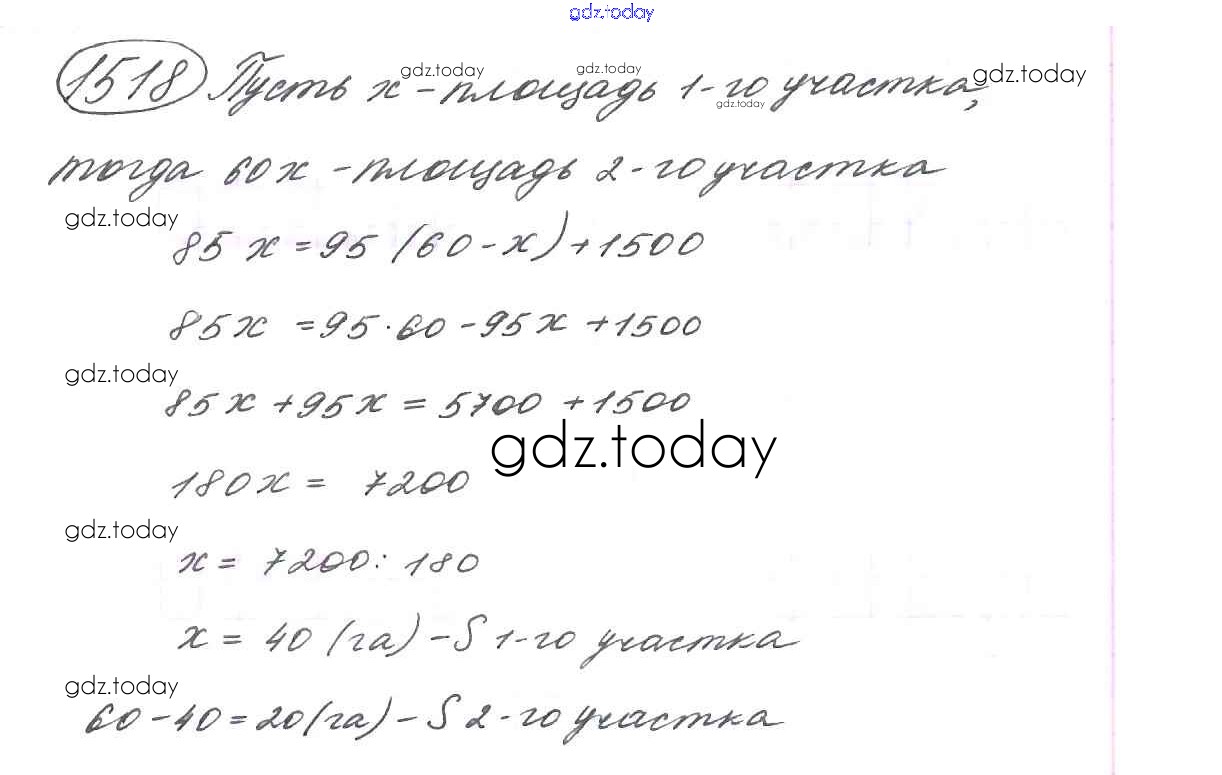 gdz.today
1518 Пусть x - площадь 1-го участка,
gdz.today gdz.today gdz.today gdz.today
тогда 60x - площадь 2-го участка
gdz.today
85x = 95(60 - x) + 1500
85x = 95 · 60 - 95x + 1500
gdz.today
85x + 95x = 5700 + 1500
gdz.today
180x = 7200
gdz.today
x = 7200 : 180
x = 40 (га) - S 1-го участка
gdz.today
60 - 40 = 20 (га) - S 2-го участка